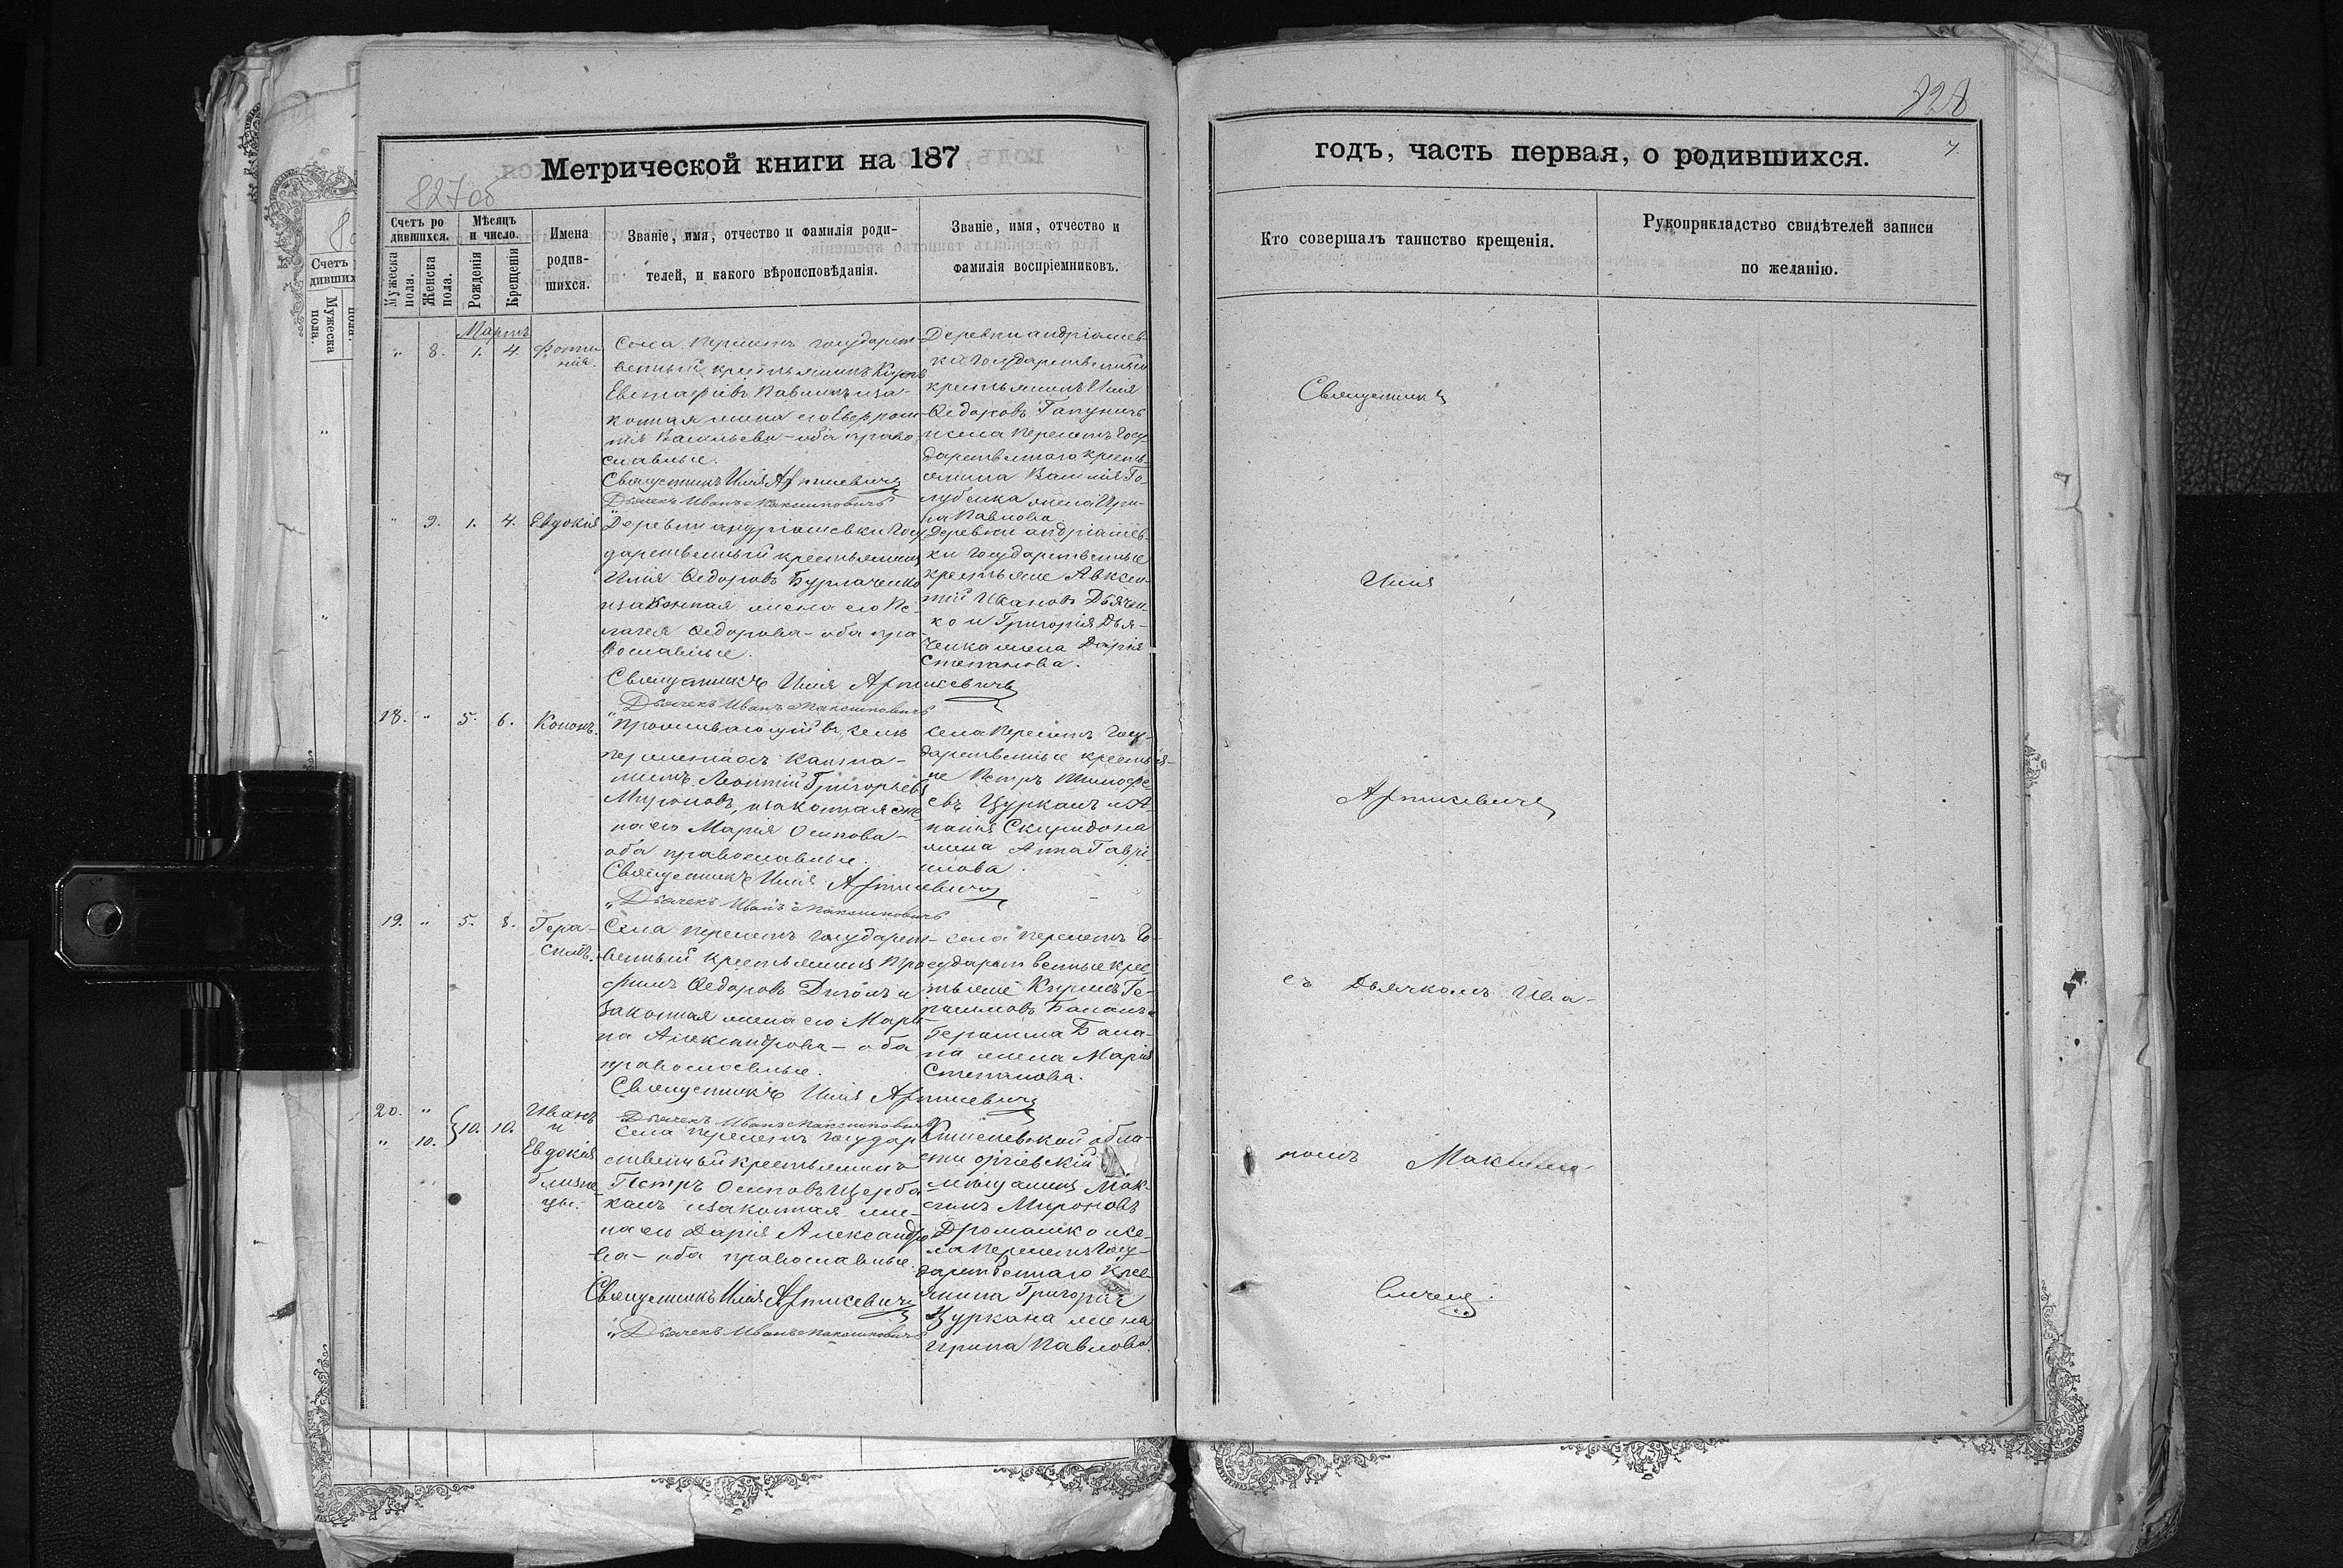 828
Метрической книги на 187
годъ, часть первая, о родившихся.
7.
827об
Счетъ ро
дившихся.
Мѣсяцъ
и число.
Мужеска
пола.
Женска
пола.
Рожденія
Крещенія
Имена
родив-
шихся.
Званіе, имя, отчество и фамилія роди-
телей, и какого вѣроисповѣданія.
Званіе, имя, отчество и
фамилія воспріемниковъ.
Кто совершалъ таинство крещенія.
Рукоприкладство свидѣтелей записи
по желанію.
Счетъ
дивших
Мужеска
пола.
Мартъ
" 8. 1. 4. Фоти-
нія.
Села Перелетъ государст-
венный крестьянинъ
Евстафіевъ Павлинъ иза-
конная жена его Евфроси-
нія Васильева - оба право
славные.
Священникъ Илія Артисевичъ
Дьячекъ Иванъ Максимовичъ
Деревни андріашев-
ки государственный
крестьянинъ Илія
Ѳедоровъ
исела Перелетъ госу-
дарственнаго кресть-
янина Василія Го-
лубенка жена Ири-
на Павлова
" 9. 1. 4. Евдокія
Деревни андріашевки госу
дарственный крестьянинъ
Илія Ѳедоровъ Бурлаченко
изаконная жена его Пе-
лагея Ѳедорова - оба пра-
вославные.
Священникъ Илія Артисевичъ
"Дьячекъ Иванъ Максимовичъ
Деревни андріашев-
ки государственные
крестьяне Авксен-
тій Ивановъ Дьячен-
ко и Григорія Дья-
ченка жена Дарія
Степанова.
18. " 5. 6. Кононъ.
Проживающій въ селѣ
перелетахъ
Леонтій Григорьевъ
Мироновъ, изаконная же-
на его Марія Осипова -
оба православные.
Священникъ Илія Артисевичъ
"Дьячекъ Иванъ Максимовичъ
села Перелетъ госу-
дарственные крестья-
не Петръ Тимофе-
евъ Цурканъ и А-
нанія Скиридона
жена Анна Гаврі-
лова.
19. " 5. 8. Гера-
симъ.
Села перелетъ государст-
венный крестьянинъ Про
Ѳедоровъ и
законная жена его Марі-
на Александрова - оба
православные.
Священникъ Илія Артисевичъ
Дьячекъ Иванъ Максимовичъ
села перелетъ го-
сударственные крес-
тьяне Ге-
расимовъ Баланъ и
Герасима Бала-
на жена Марія
Степанова.
20. " 10. 10. Иванъ
и
" 10. Евдокія
близне-
цы.
Села перелетъ государ
ственный крестьянинъ
Петръ Осиповъ Щерба
канъ изаконная же-
на его Дарія Александро
ва - оба православные.
Священникъ Илія Артисевичъ
"Дьячекъ Иванъ Максимовичъ
обла-
сти оргіевскій
мещанинъ Мак-
симъ Мироновъ
Дромашко исе-
ла Перелетъ госу-
дарственнаго крес-
янина Григорія
Цуркана жена
Ирина Павлова.
Священникъ
Илія
Артисевичъ
съ Дьячкомъ Ива-
номъ Максимо-
вичемъ.